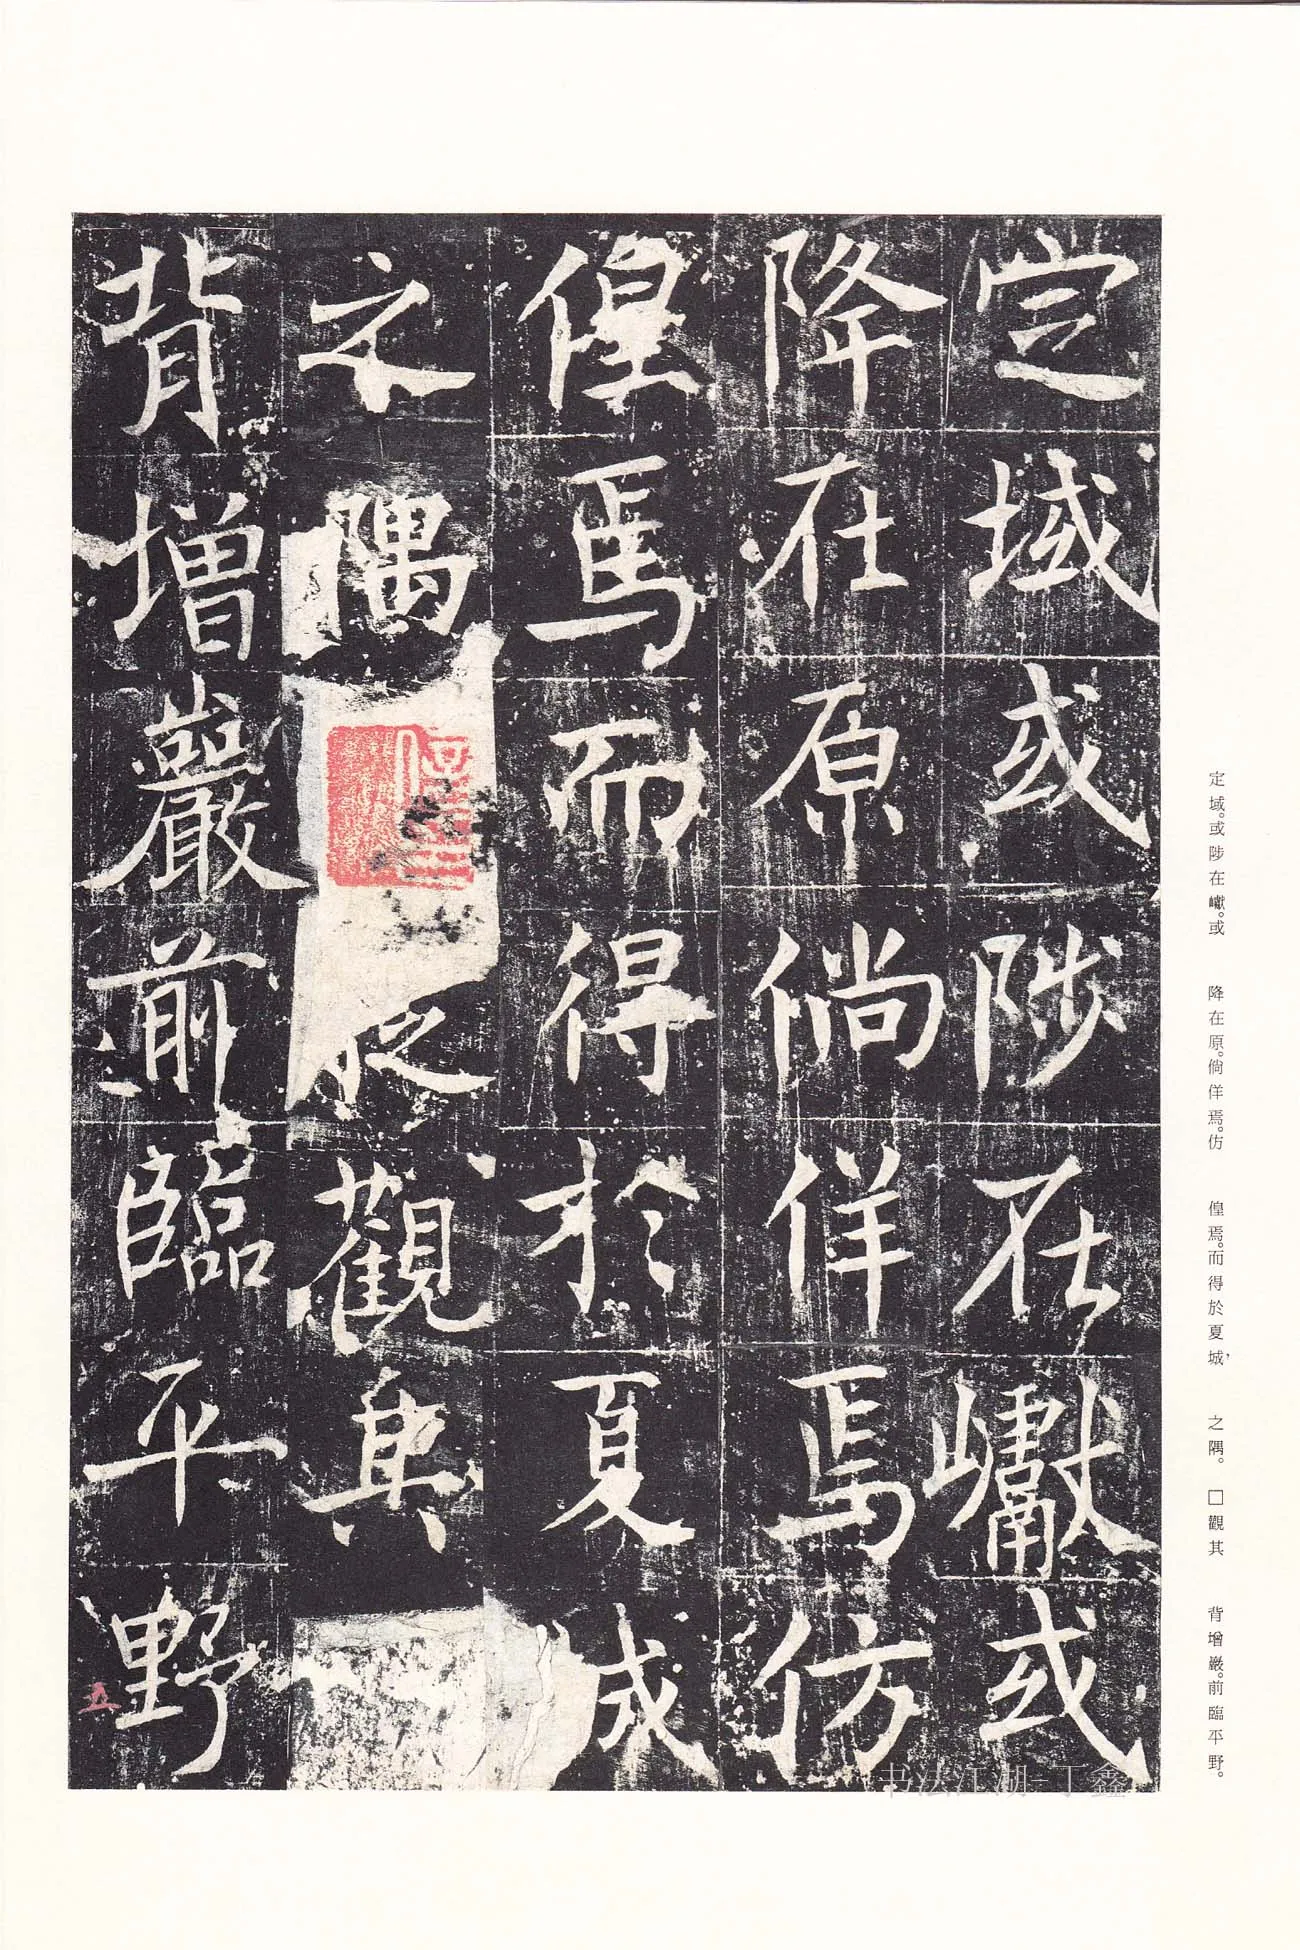 定域或陟在巘或
降在原倘佯焉仿
偟焉而得於夏成
之隅觀其
背增嚴前臨平野
五
定域。或陟在巘。或
降在原。倘佯焉。仿
偟焉。而得於夏城，
之隅。□觀其
背增嚴。前臨平野。
书法江湖-丁鑫